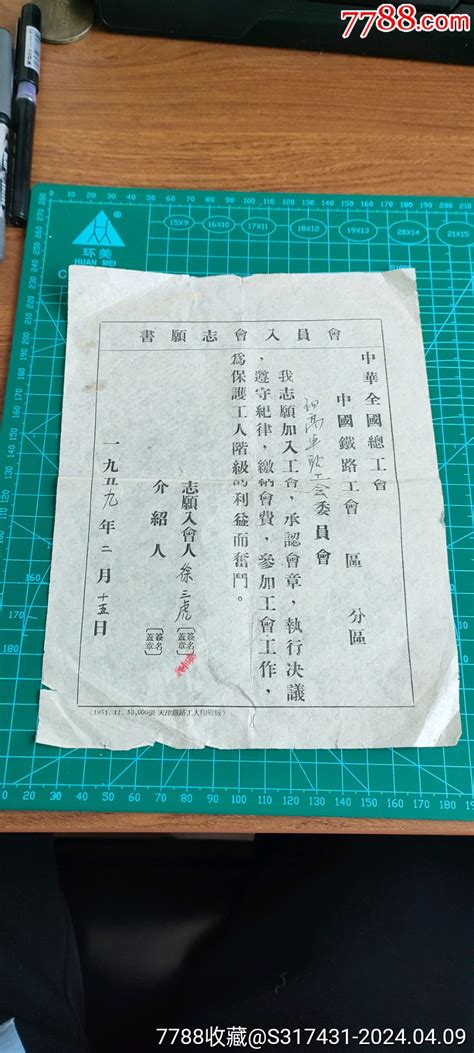 7788.com
环美
HUAN MEI
15X9 16X10 17X11 18X12 19X13 20X14 21X15
書願志會入員會
中華全國總工會
中國鐵路工會 區 分區
車 工会委員會
我志願加入工會,承認會章,執行决議
,遵守紀律,繳納會費,參加工會工作,
為保護工人階級的利益而奮鬥。
志願入會人 徐三虎 〔簽名蓋章〕
介紹人 〔簽名蓋章〕
一九五九年二月十五日
(1951.12. 30,000張 天津鐵路工人印刷廠)
7788收藏@S317431-2024.04.09